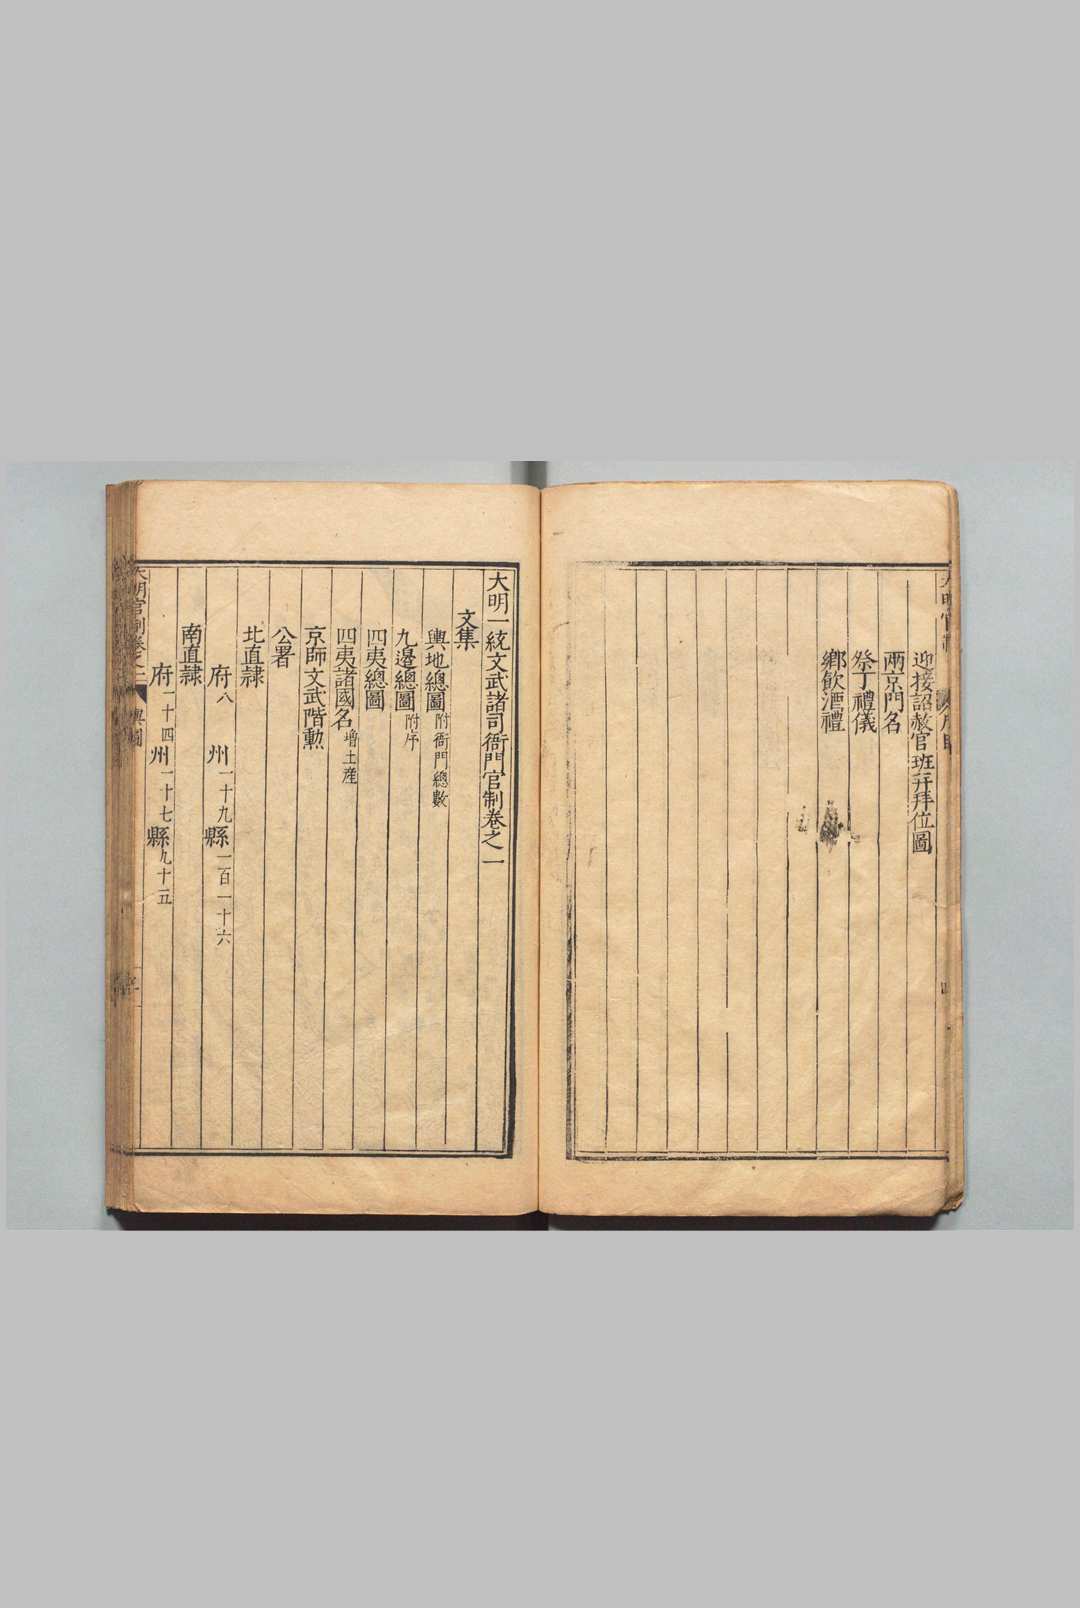 迎接詔赦官班并拜位圖
兩京門名
祭丁禮儀
鄉飲酒禮
大明一統文武諸司衙門官制卷之一
文集
輿地總圖附衙門總數
九邊總圖附序
四夷總圖
四夷諸國名增土產
京師文武階勲
公署
北直隷
府八 州一十九 縣一百一十六
南直隷
府一十四 州一十七 縣九十五
大明官制卷之一 輿圖